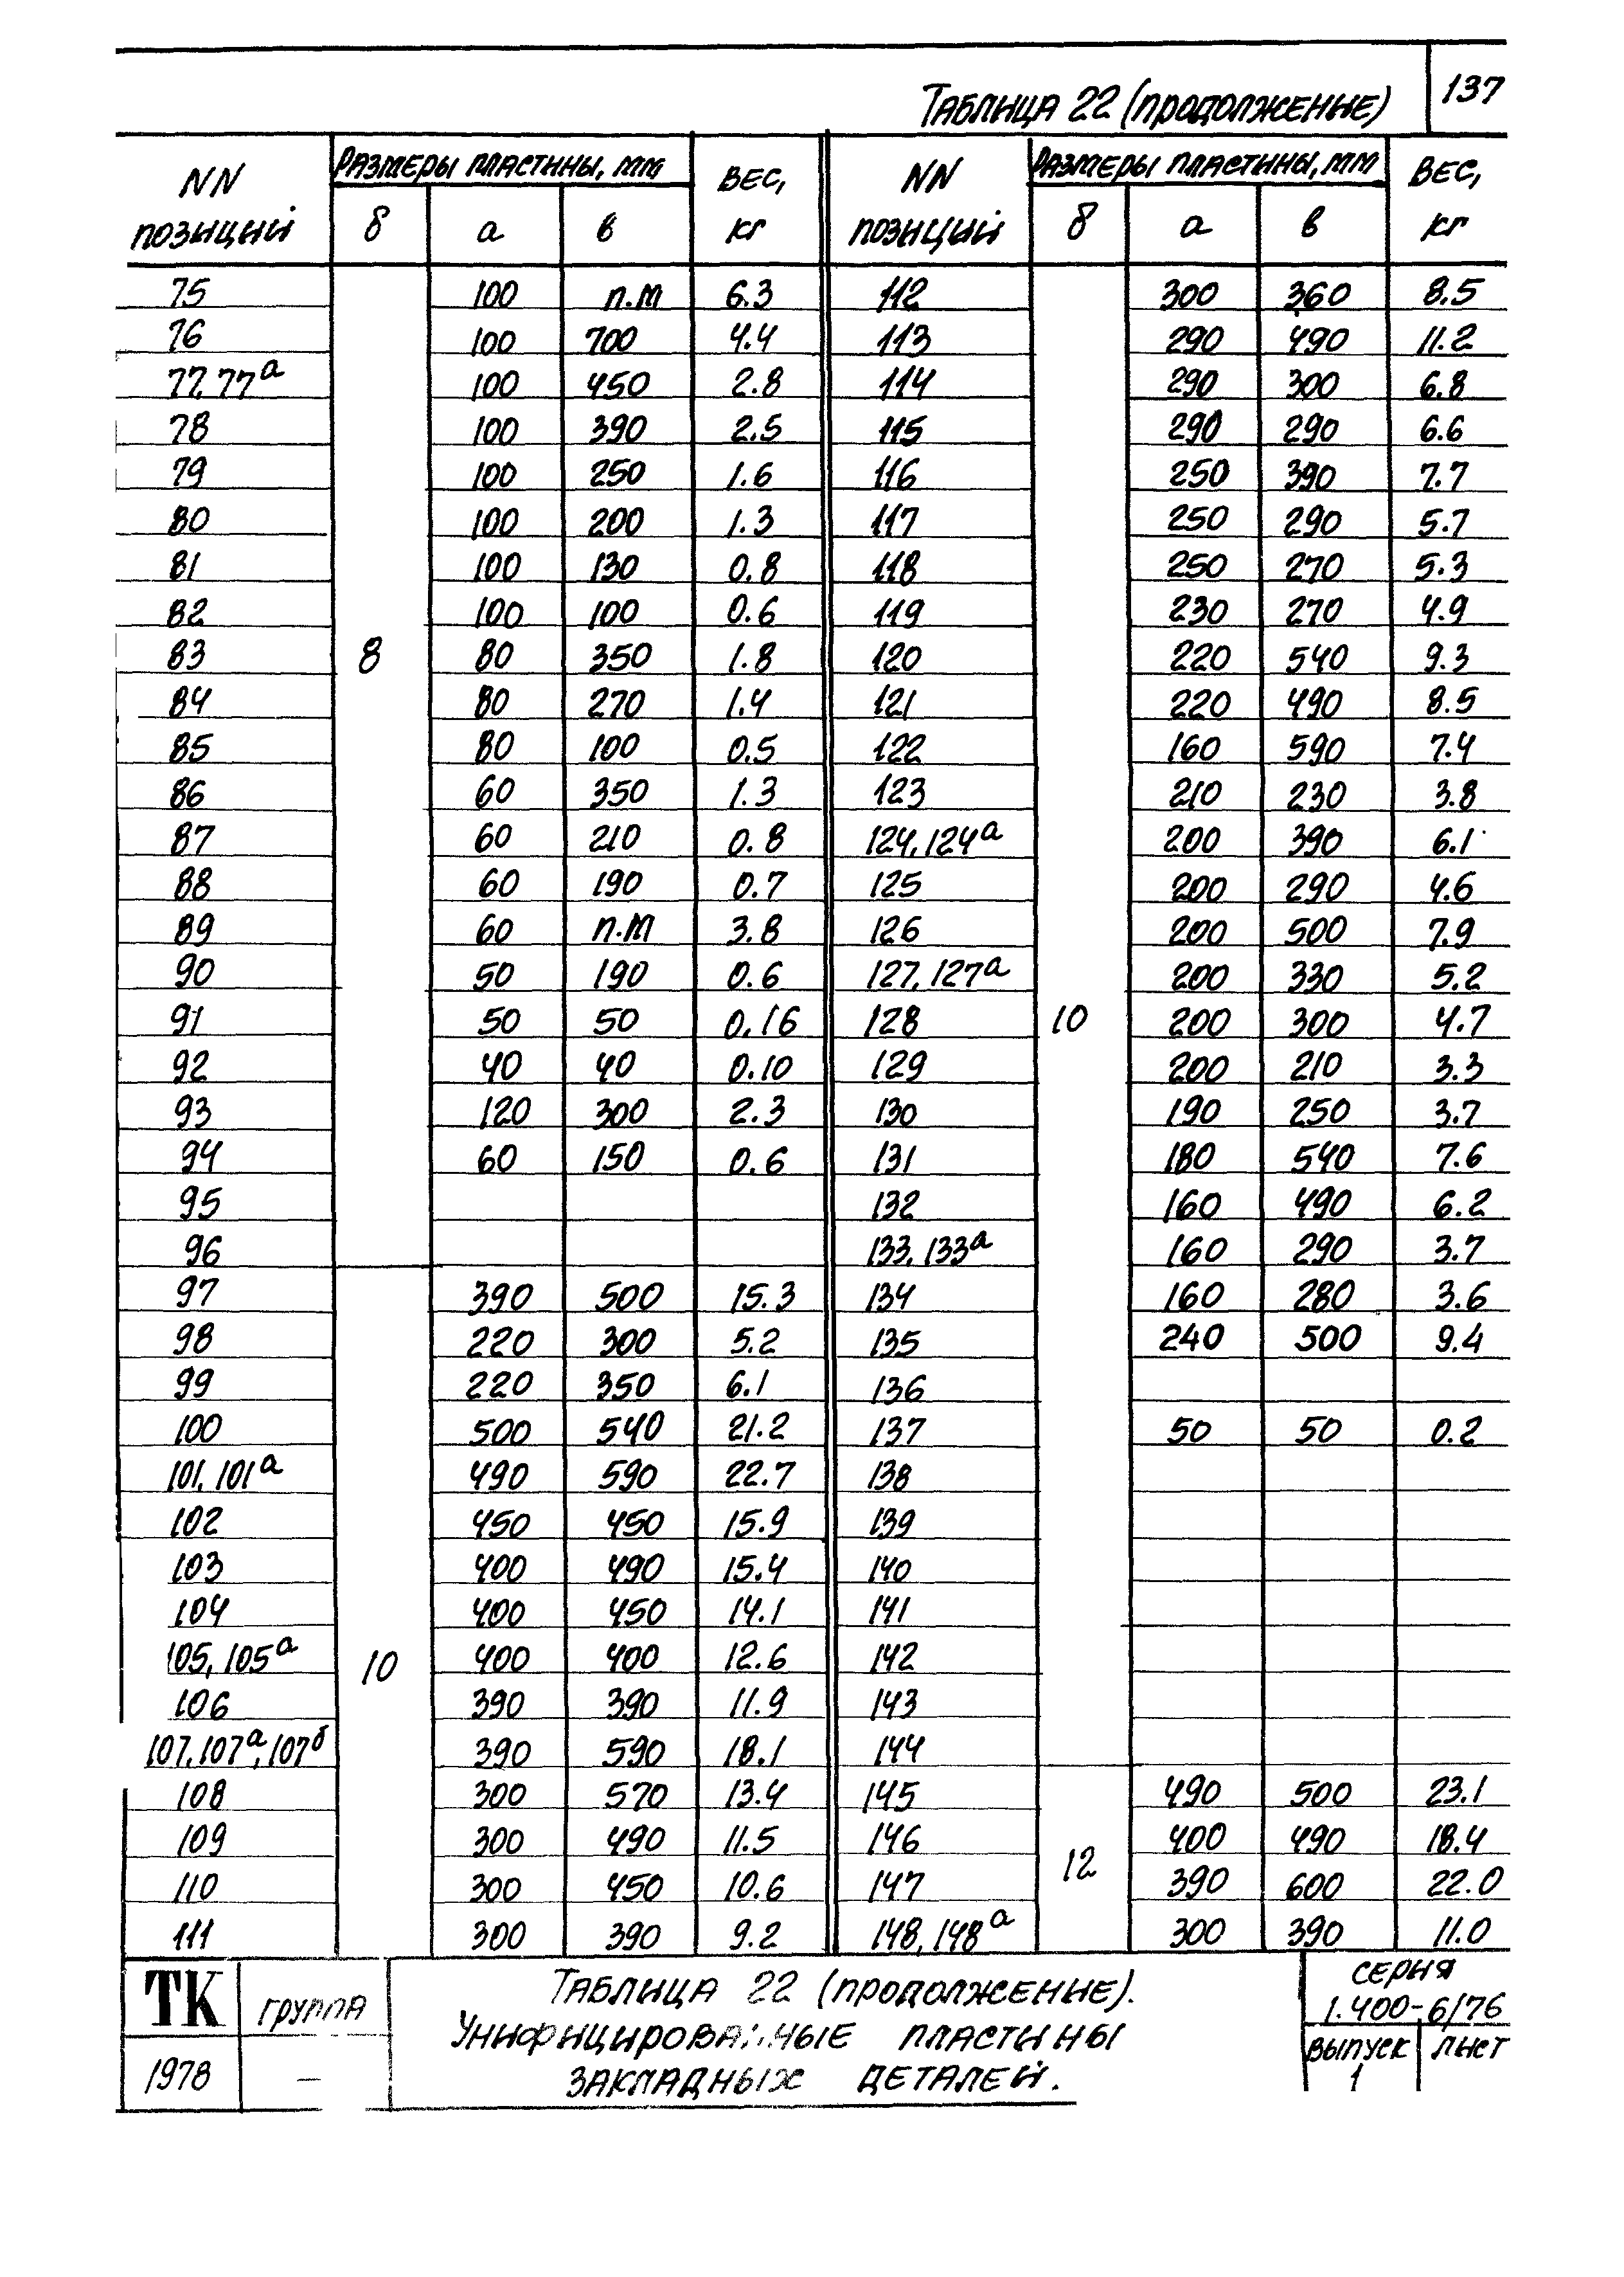 Таблица 22 (продолжение) 137
NN позиций | Размеры пластины, мм | Вес, кг | NN позиций | Размеры пластины, мм | Вес, кг
δ | а | в | δ | а | в
75 100 п.м 6.3 112 300 360 8.5
76 100 700 4.4 113 290 490 11.2
77, 77а 100 450 2.8 114 290 300 6.8
78 100 390 2.5 115 290 290 6.6
79 100 250 1.6 116 250 390 7.7
80 100 200 1.3 117 250 290 5.7
81 100 130 0.8 118 250 270 5.3
82 100 100 0.6 119 230 270 4.9
83 8 80 350 1.8 120 220 540 9.3
84 80 270 1.4 121 220 490 8.5
85 80 100 0.5 122 160 590 7.4
86 60 350 1.3 123 210 230 3.8
87 60 210 0.8 124, 124а 200 390 6.1
88 60 190 0.7 125 200 290 4.6
89 60 п.м 3.8 126 200 500 7.9
90 50 190 0.6 127, 127а 200 330 5.2
91 50 50 0.16 128 10 200 300 4.7
92 40 40 0.10 129 200 210 3.3
93 120 300 2.3 130 190 250 3.7
94 60 150 0.6 131 180 540 7.6
95 132 160 490 6.2
96 133, 133а 160 290 3.7
97 390 500 15.3 134 160 280 3.6
98 220 300 5.2 135 240 500 9.4
99 220 350 6.1 136
100 500 540 21.2 137 50 50 0.2
101, 101а 490 590 22.7 138
102 450 450 15.9 139
103 400 490 15.4 140
104 400 450 14.1 141
105, 105а 10 400 400 12.6 142
106 390 390 11.9 143
107, 107а, 107б 390 590 18.1 144
108 300 570 13.4 145 490 500 23.1
109 300 490 11.5 146 12 400 490 18.4
110 300 450 10.6 147 390 600 22.0
111 300 390 9.2 148, 148а 300 390 11.0
ТК группа
1978 —
Таблица 22 (продолжение).
Унифицированные пластины
закладных деталей.
серия
1.400-6/76
выпуск лист
1